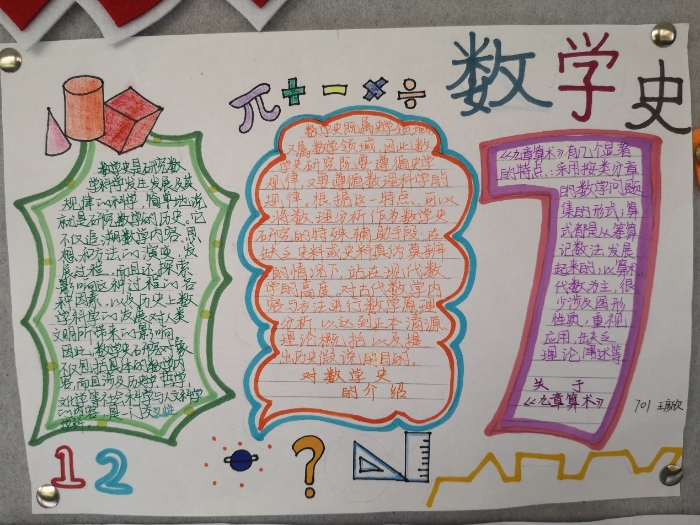 数学史
π + − × ÷
数学史是研究数
学科学发生发展及其
规律的科学，简单地说
就是研究数学的历史。它
不仅追溯数学内容、思
想和方法的演变、发
展过程，而且还探索
影响这种过程的各
种因素，以及历史上数
学科学的发展对人类
文明所带来的影响。
因此，数学史研究对象
不仅包括具体的数学内
容，而且涉及历史学、哲学、
文化学等社会科学与人文科学
的内容，是一门交叉性
学科。
数学史既属史学领域，
又属数学领域，因此，数
学史研究既要遵循史学
规律，又要遵循数理科学的
规律。根据这一特点，可以
将数理分析作为数学史
研究的特殊辅助手段，在
缺乏史料或史料真伪莫辨
的情况下，站在现代数
学的高度，对古代数学内
容与方法进行数学原理
分析，以达到正本清源、
理论概括以及提
出历史假说的目的。
对数学史
的介绍
《九章算术》有几个显著
的特点：采用按类分章
的数学问题
集的形式；算
式都是从筹算
记数法发展
起来的；以算术、
代数为主，很
少涉及图形
性质；重视
应用，缺乏
理论阐述等。
关于
《九章算术》
701
1 2
?